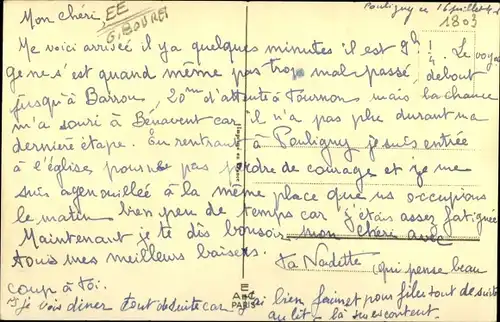 Pouligny ce 16 juillet
1803
Mon chéri
EE
G. BOURET
Me voici arrivée il y a quelques minutes il est 9h 1/4. Le voya
ge ne s'est quand même pas trop mal passé, debout
jusqu'à Barrou, 20m d'attente à Tournon mais la chance
m'a souri à Bénavent car il n'a pas plu durant ma
dernière étape. En rentrant à Pouligny je suis entrée
à l'église pour ne pas perdre de courage et je me
suis agenouillée à la même place que ns occupions
le matin bien peu de temps car j'étais assez fatiguée
Maintenant je te dis bonsoir mon chéri avec
tous mes meilleurs baisers.
ta Nadette
qui pense beau
coup à toi.
je vais dîner tout de suite car j'ai bien faim et pour filer tout de suite
au lit -
PARIS